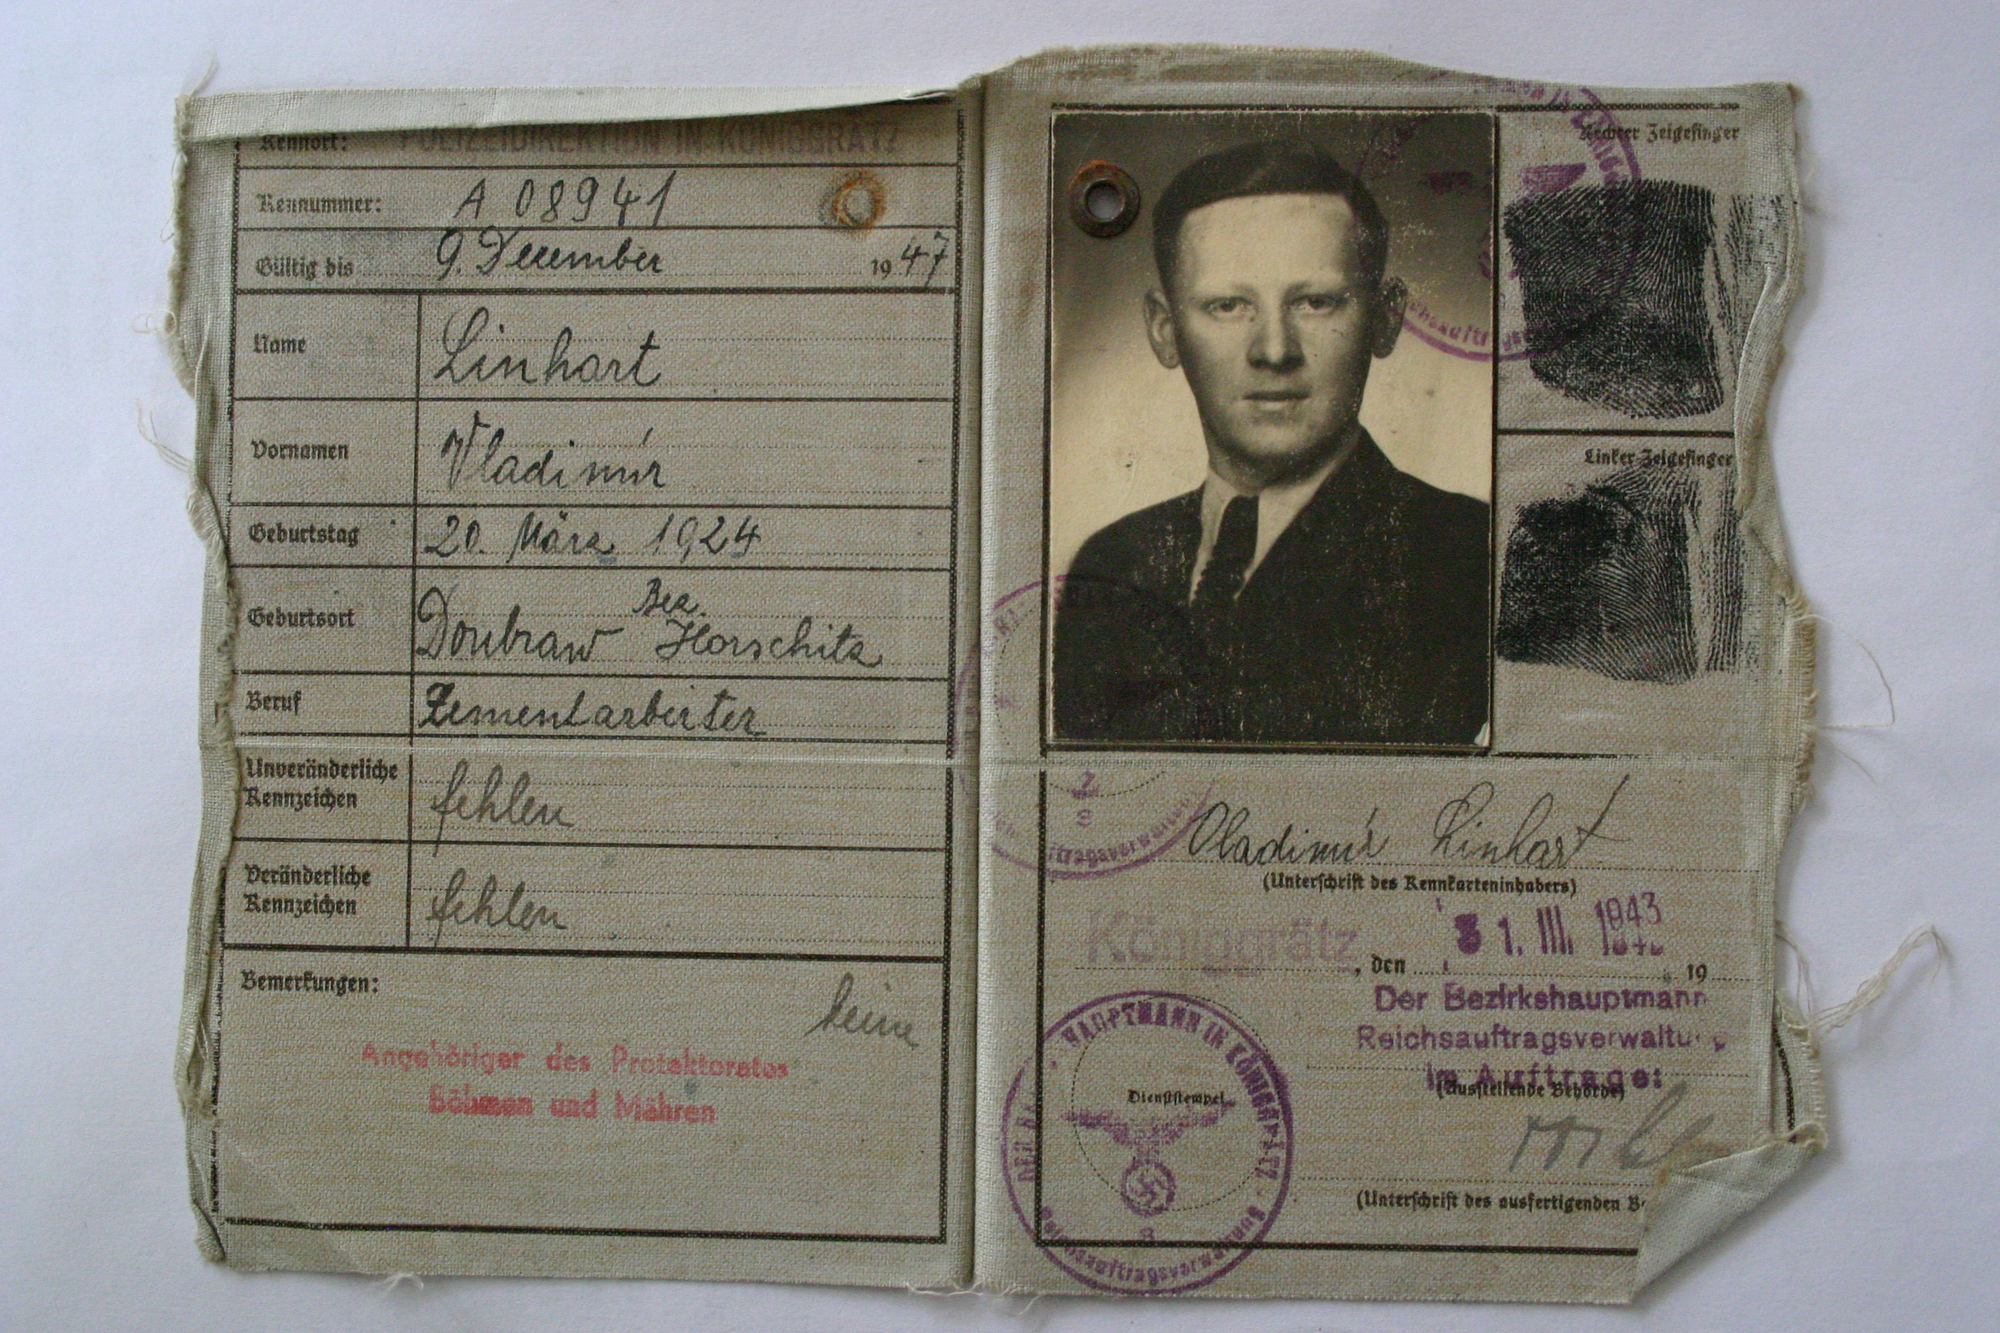 Kennort: POLIZEIDIREKTION IN KÖNIGGRÄTZ
Kennummer: A 08941
Gültig bis 9. Dezember 1947
Name Linhart
Vornamen Vladimír
Geburtstag 20. März 1924
Bez.
Geburtsort Doubraw Horschitz
Beruf Zementarbeiter
Unveränderliche
Kennzeichen fehlen
Veränderliche
Kennzeichen fehlen
Bemerkungen: keine
Angehöriger des Protektorates
Böhmen und Mähren
Rechter Zeigefinger
Linker Zeigefinger
Vladimír Linhart
(Unterschrift des Kennkarteninhabers)
Königgrätz, den 31. III. 1943 19
Der Bezirkshauptmann
Reichsauftragsverwaltung
Im Auftrage:
(Ausstellende Behörde)
HAUPTMANN IN KÖNIGGRÄTZ
Dienststempel
Reichsauftragsverwaltung
(Unterschrift des ausfertigenden